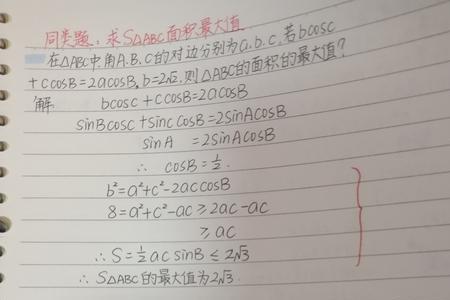 同类题：求S△ABC面积最大值
在△ABC中角A.B.C的对边分别为a.b.c.若bcosc
+ccosB=2acosB,b=2√2,则△ABC的面积的最大值?
解: bcosc+ccosB=2acosB
sinBcosc+sinccosB=2sinAcosB
sinA =2sinAcosB
∴ cosB=½.
b²=a²+c²-2accosB
8=a²+c²-ac≥2ac-ac
≥ac
∴S=½acsinB≤2√3
∴S△ABC的最大值为2√3.